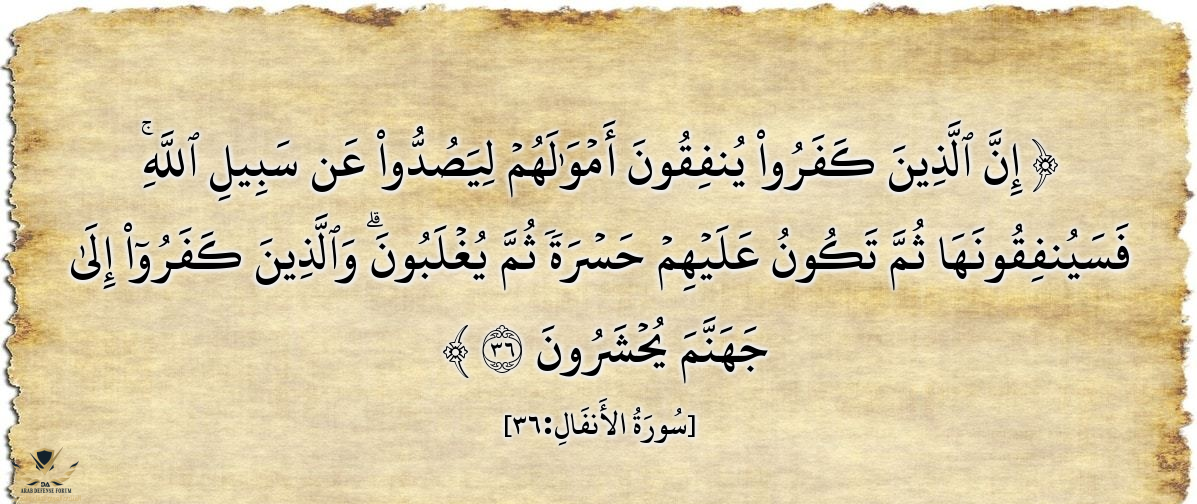 ﴿ إِنَّ ٱلَّذِينَ كَفَرُوا۟ يُنفِقُونَ أَمْوَٰلَهُمْ لِيَصُدُّوا۟ عَن سَبِيلِ ٱللَّهِ ۚ
فَسَيُنفِقُونَهَا ثُمَّ تَكُونُ عَلَيْهِمْ حَسْرَةً ثُمَّ يُغْلَبُونَ ۗ وَٱلَّذِينَ كَفَرُوٓا۟ إِلَىٰ
جَهَنَّمَ يُحْشَرُونَ ٣٦ ﴾
[سُورَةُ الأَنفَالِ:٣٦]
DA
ARAB DEFENSE FORUM